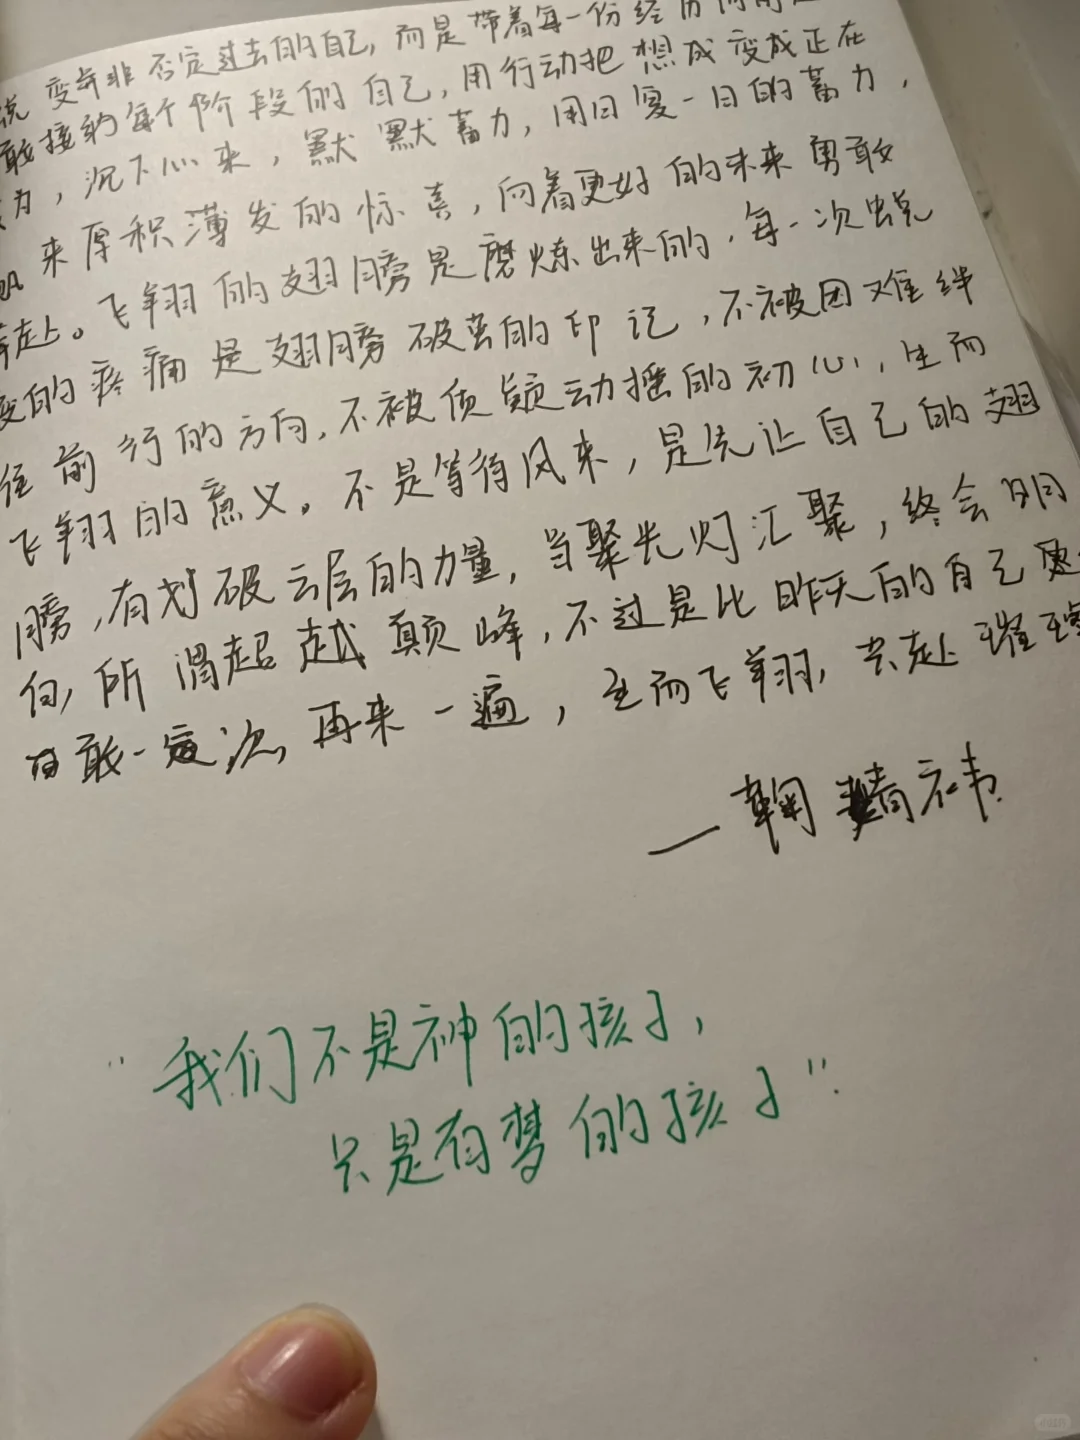 变并非否定过去的自己，而是带着每一份经历
敢接纳每个阶段的自己，用行动把想成变成正在
为，沉下心来，默默蓄力，用日复一日的蓄力，
来厚积薄发的惊喜，向着更好的未来勇敢
赴。飞翔的翅膀是磨炼出来的，每一次蜕
变的疼痛是翅膀破茧的印记，不被困难绊
住前行的方向，不被质疑动摇的初心，生而
飞翔的意义。不是等待风来，是先让自己的翅
膀，有划破云层的力量，当聚光灯汇聚，终会明
白，所谓超越巅峰，不过是比昨天的自己更
敢一次，再来一遍，生而飞翔，共赴璀璨
—鞠婧祎
"我们不是神的孩子，
只是有梦的孩子"